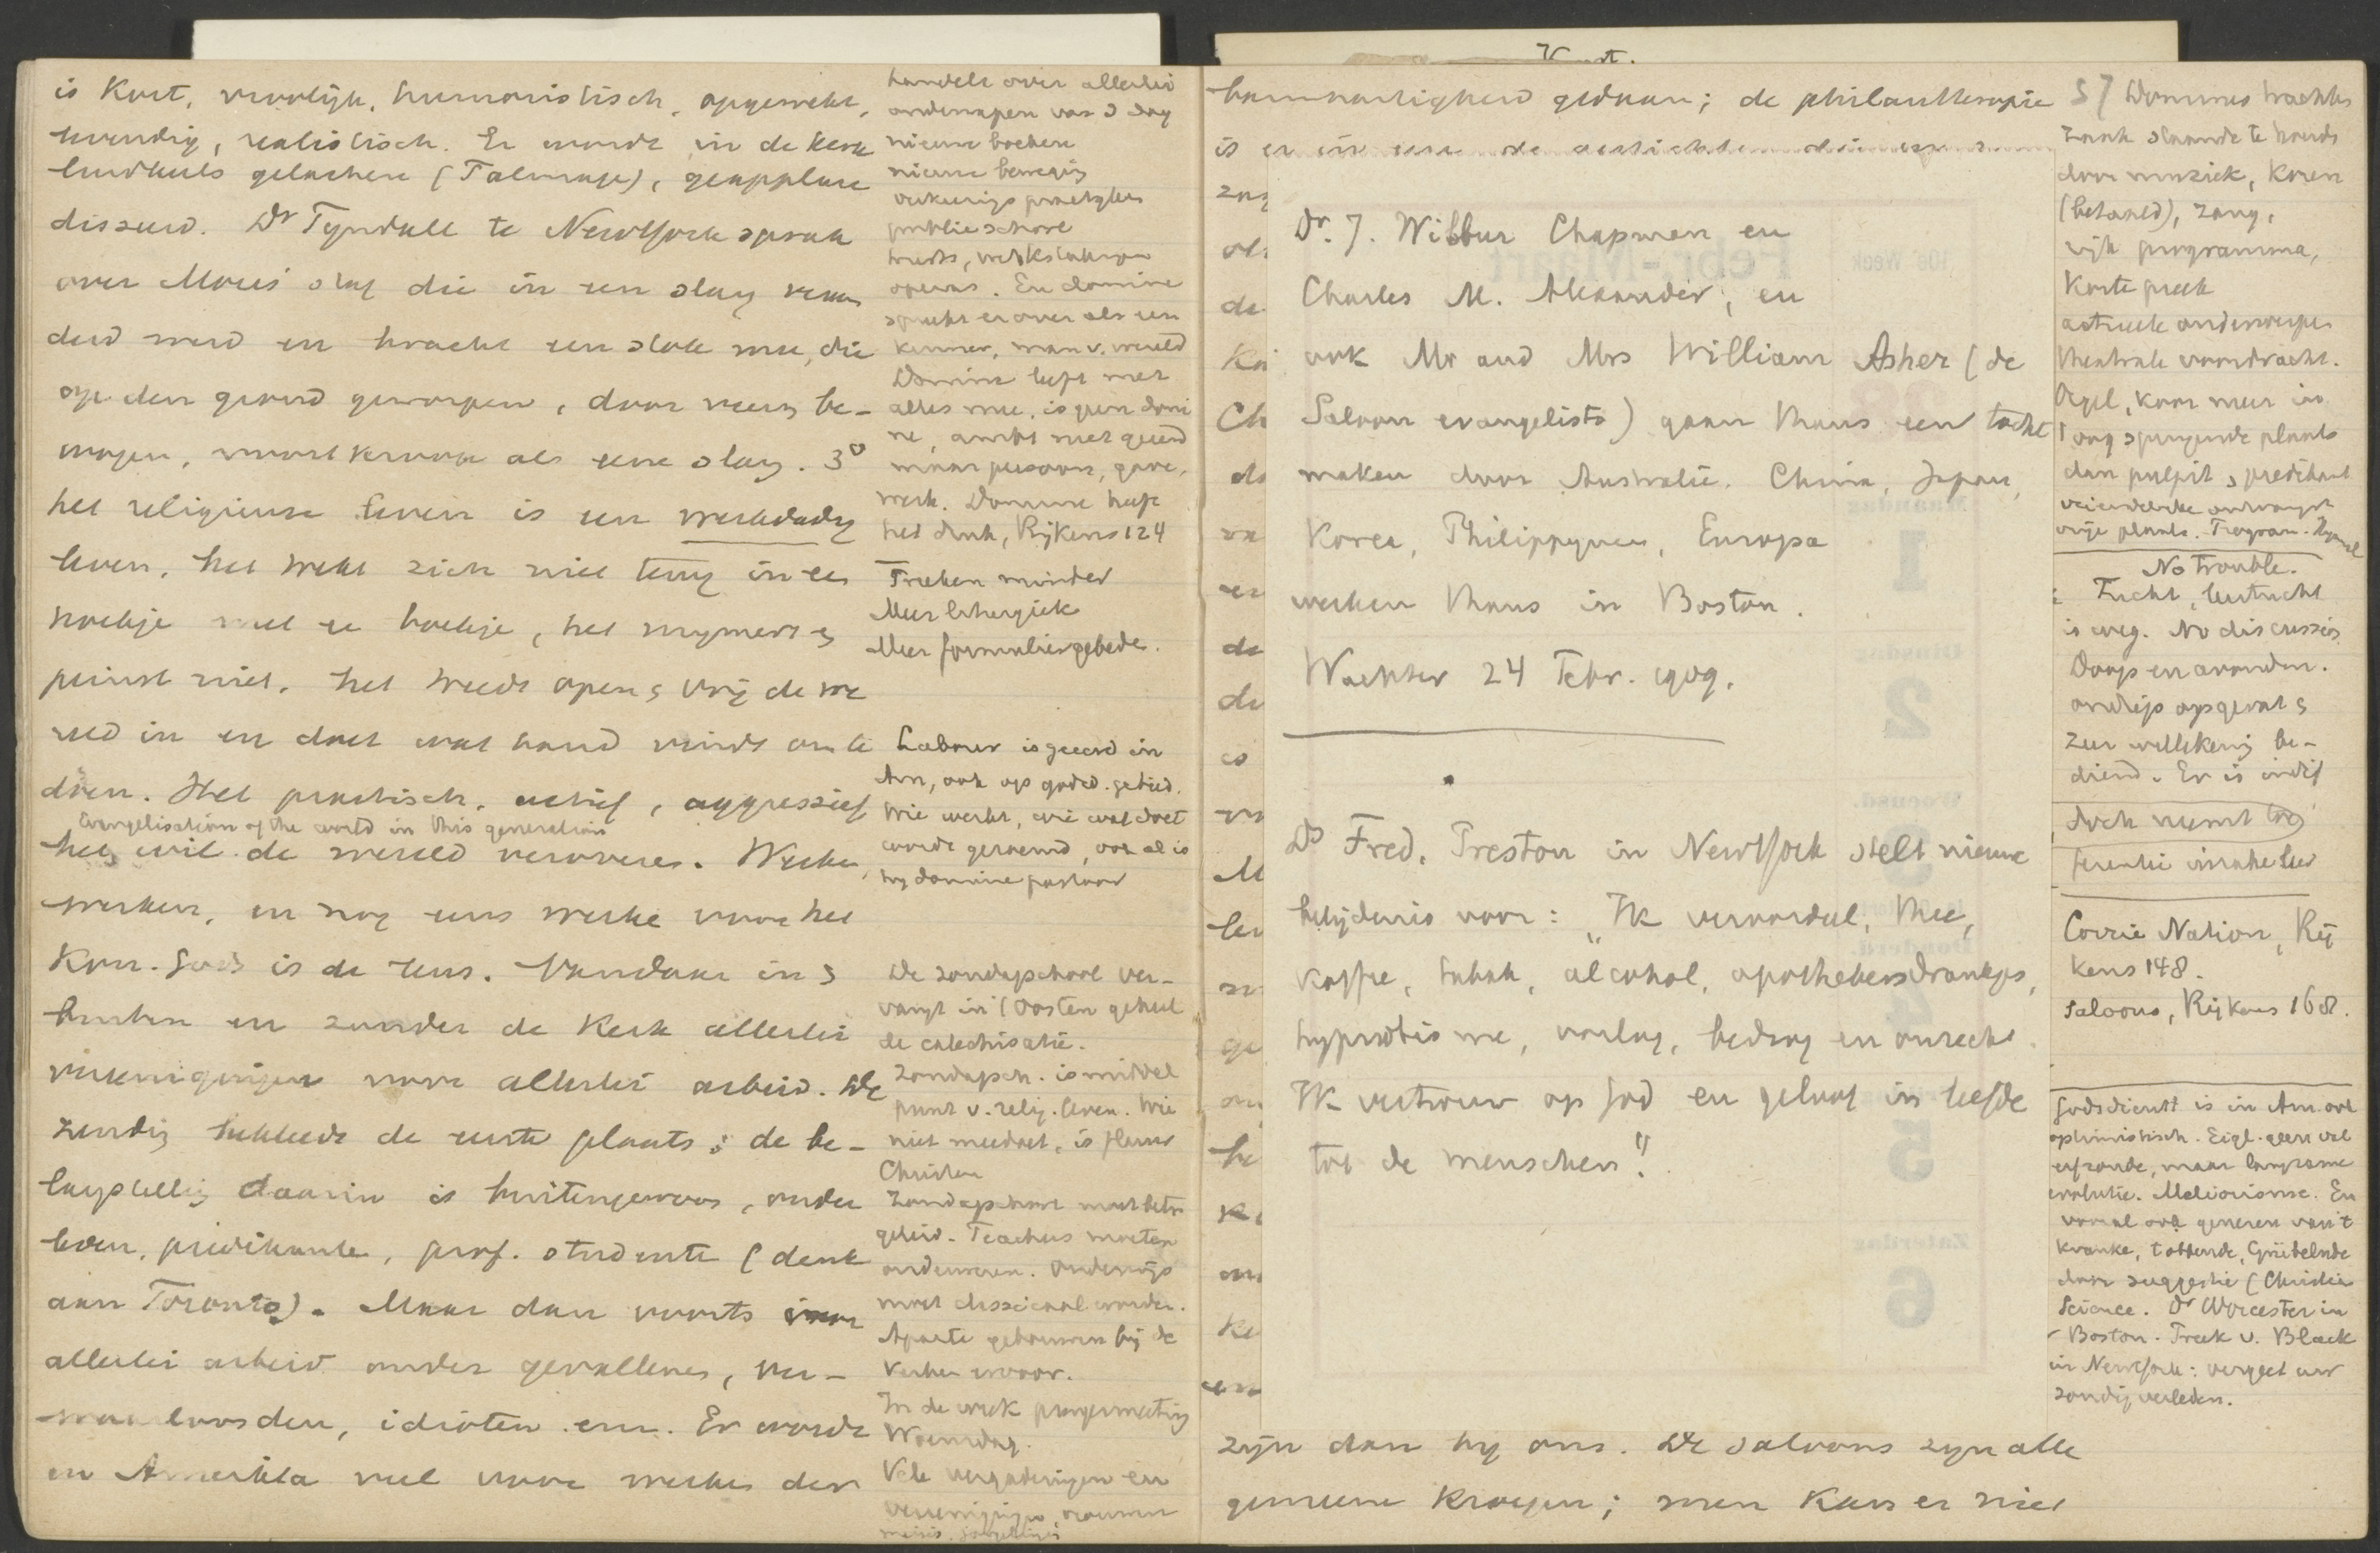 is kort, vroolijk, humoristisch, opgewekt,
leevendig, realistisch. Er wordt in de kerk
luidkeels gelachen (Talmage), geapplau
disseerd. Dr Tyndall te NewYork sprak
over Mozes' staf die in een slang veran
derd werd en bracht een stok mee, die
op den grond geworpen, door veeren be-
wogen, voortkroop als eene slang. 3o
het religieuse leven is een werkdadig
leven. het trekt zich niet terug in een
hoekje met een boekje, het mijmert en
peinst niet. het treedt open en vrij de we
reld in en doet wat hand vindt om te
doen. Het practisch, actief, aggressief
Evangelisation of the world in this generation
het wil de wereld veroveren. Werken,
werken, en nog eens werken voor het
Kon. Gods is de leus. Vandaar in en
buiten en zonder de kerk allerlei
vereenigingen voor allerlei arbeid. De
zending bekleedt de eerste plaats; de be-
langstelling daarin is buitengewoon, onder
leeken, predikanten, prof. studenten (denk
aan Toronto). Maar dan voorts voor
allerlei arbeid onder gevallenen, ver-
waarloosden, idioten enz. Er wordt
in Amerika veel voor werken der
handelt over allerlei
onderwerpen van d dag
nieuwe boeken
nieuwe beweging
verkiezings praktijken
publieschool
trusts, werkstakingen
operas. En domine
spreekt er over als een
kenner, man v. wereld
Domine leeft met
alles mee, is geen domi
ne, ambt niet geëerd
maar persoon, gave,
werk. Domine heeft
het druk, Rijkens 124
Preeken minder
Meer liturgiek
Meer formuliergebeden.
Labour is geeerd in
Am, ook op godsd. gebied.
Wie werkt, wie wat doet
wordt geroemd, ook al is
hij domine pastoor
De zondagschool ver-
vangt in 't Oosten geheel
de catechisatie.
Zondagsch. is middel
punt v. relig. leven. Wie
niet meedoet, is flauw
Christen
Zondagschool moet beter
geleid. Teachers moeten
onderwezen. Onderwijs
moet classicaal worden.
Aparte gebouwen bij de
kerken ervoor.
In de week prayermeeting
Woensdag.
Vele vergaderingen en
vereenigingen, vrouwen
meisjes, jongelingen
Kunst.
barmhartigheid gedaan; de philanthropie
is er in eene de
Dr. J. Wilbur Chapman en
Charles M. Alexander, en
ook Mr and Mrs William Asher (de
Saloon evangelists) gaan thans een tocht
maken door Australië, China, Japan,
Korea, Philippynen, Europa
werken thans in Boston.
Wachter 24 Febr. 1909.
Ds Fred. Preston in NewYork stelt nieuwe
belijdenis voor: "Ik veroordeel, thee,
koffie, tabak, alcohol, apothekersdrankjes,
hypnotisme, oorlog, bedrog en onrecht.
Ik vertrouw op God en geloof in liefde
tot de menschen".
zijn dan bij ons. De saloons zijn alle
gemeene kroegen; men kan er niet
5/ Domines trachten
zaak staande te houden
door muziek, koren
(betaald), zang,
rijk programma,
korte preek
actueele onderwerpen
theatrale voordracht.
Orgel, koor meer in
't oog springende plaats
dan pulpit en predikant
vriendelijke ontvangst
vrije plaats. Program. Hymnal
No trouble.
Tucht, leertucht
is weg. No discussies
Doop en avondm.
ondiep opgevat en
zeer willekeurig be-
diend. Er is indif
doch neemt toe
ferentie inzake leer
Corrie Nation, Rij
kens 148.
Saloons, Rijkens 168.
Godsdienst is in Am. ook
optimistisch. Eigl. geen val
erfzonde, maar langzame
evolutie. Meliorisme. En
vooral ook genezen van 't
kranke, tobbende, Grübelnde
door suggestie (Christian
Science. Dr Worcester in
Boston. Preek v. Black
in NewYork: vergeet uw
zondig verleden.